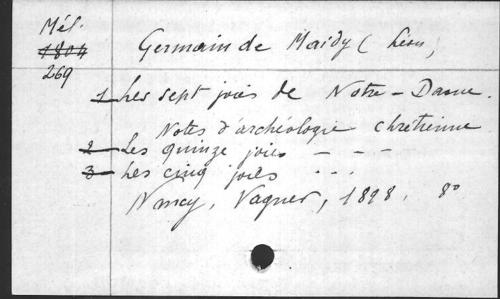 Mél.
1804
269
Germain de Maidy (Léon)
1 Les sept joies de Notre-Dame.
Notes d'archéologie chrétienne
2 Les quinze joies - - -
3 Les cinq joies . . .
Nancy, Vagner, 1898, 8°